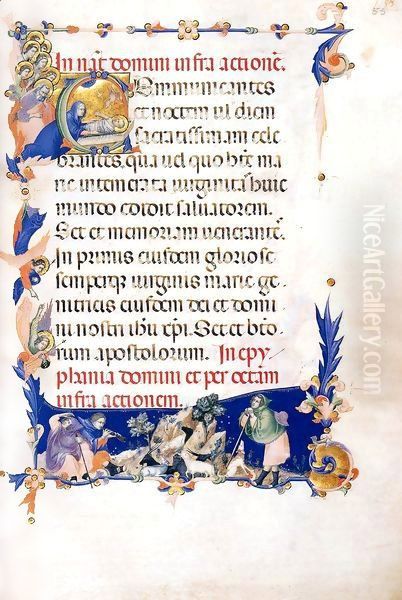 In nat domini infra actionē.
Communicantes
et noctem vel diem
sacratissimam cele
brantes, qua vel quo bte ma
rie intemerata virginitas huic
mundo edidit salvatorem.
Set et memoriam venerantē.
In primis eiusdem gloriose
semperque virginis marie ge
nitricis eiusdem dei et domi
ni nostri ihu xpi. Set et bto
rum apostolorum. In epy
phania domini et per octam
infra actionem.
55
NiceArtGallery.com